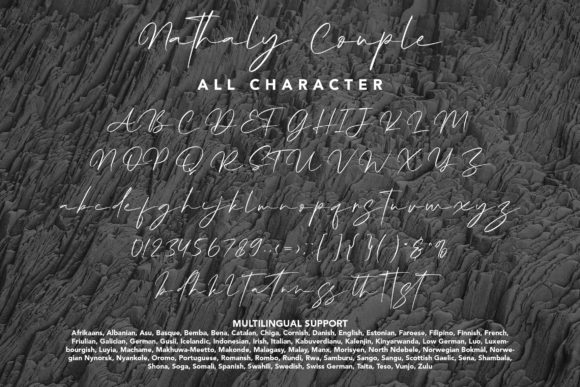 Nathaly Couple
ALL CHARACTER
A B C D E F G H I J K L M
N O P Q R S T U V W X Y Z
a b c d e f g h i j k l m n o p q r s t u v w x y z
0 1 2 3 4 5 6 7 8 9
MULTILINGUAL SUPPORT
Afrikaans, Albanian, Asu, Basque, Bemba, Bena, Catalan, Chiga, Cornish, Danish, English, Estonian, Faroese, Filipino, Finnish, French,
Friulian, Galician, German, Gusii, Icelandic, Indonesian, Irish, Italian, Kabuverdianu, Kalenjin, Kinyarwanda, Low German, Luo, Luxem-
bourgish, Luyia, Machame, Makhuwa-Meetto, Makonde, Malagasy, Malay, Manx, Morisyen, North Ndebele, Norwegian Bokmål, Norwe-
gian Nynorsk, Nyankole, Oromo, Portuguese, Romansh, Rombo, Rundi, Rwa, Samburu, Sango, Sangu, Scottish Gaelic, Sena, Shambala,
Shona, Soga, Somali, Spanish, Swahili, Swedish, Swiss German, Taita, Teso, Vunjo, Zulu